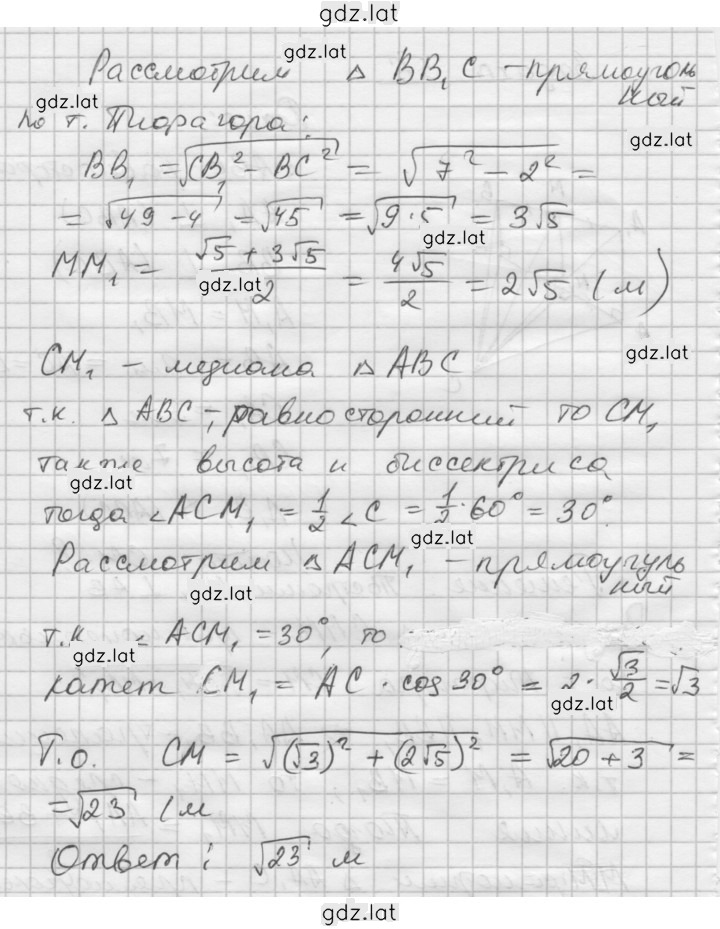 gdz.lat
Рассмотрим gdz.lat △ BB₁C – прямоуголь
gdz.lat ный
по т. Пифагора: gdz.lat
BB₁ = √(CB₁² – BC²) = √(7² – 2²) =
= √(49 – 4) = √45 = √(9·5) = 3√5
gdz.lat
MM₁ = (√5 + 3√5)/2 = 4√5/2 = 2√5 (м)
gdz.lat
CM₁ – медиана △ ABC gdz.lat
т.к. △ ABC – равносторонний то CM₁
также высота и биссектриса
gdz.lat
тогда ∠ACM₁ = 1/2 ∠C = 1/2 · 60° = 30°.
gdz.lat
Рассмотрим △ ACM₁ – прямоуголь
gdz.lat ный
т.к ∠ ACM₁ = 30°, то
gdz.lat
катет CM₁ = AC · cos 30° = 2 · √3/2 = √3
gdz.lat
Т.о. CM = √((√3)² + (2√5)²) = √(20 + 3) =
= √23 (м
Ответ: √23 м
gdz.lat